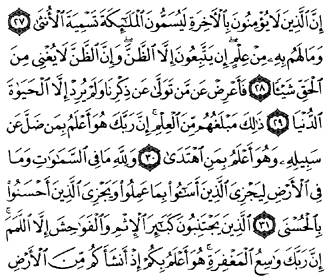 إِنَّ ٱلَّذِينَ لَا يُؤْمِنُونَ بِٱلْءَاخِرَةِ لَيُسَمُّونَ ٱلْمَلَٰٓئِكَةَ تَسْمِيَةَ ٱلْأُنثَىٰ ٢٧
وَمَا لَهُم بِهِۦ مِنْ عِلْمٍ ۖ إِن يَتَّبِعُونَ إِلَّا ٱلظَّنَّ ۖ وَإِنَّ ٱلظَّنَّ لَا يُغْنِى مِنَ
ٱلْحَقِّ شَيْـًٔا ٢٨ فَأَعْرِضْ عَن مَّن تَوَلَّىٰ عَن ذِكْرِنَا وَلَمْ يُرِدْ إِلَّا ٱلْحَيَوٰةَ
ٱلدُّنْيَا ٢٩ ذَٰلِكَ مَبْلَغُهُم مِّنَ ٱلْعِلْمِ ۚ إِنَّ رَبَّكَ هُوَ أَعْلَمُ بِمَن ضَلَّ عَن
سَبِيلِهِۦ وَهُوَ أَعْلَمُ بِمَنِ ٱهْتَدَىٰ ٣٠ وَلِلَّهِ مَا فِى ٱلسَّمَٰوَٰتِ وَمَا
فِى ٱلْأَرْضِ لِيَجْزِىَ ٱلَّذِينَ أَسَٰٓـُٔوا۟ بِمَا عَمِلُوا۟ وَيَجْزِىَ ٱلَّذِينَ أَحْسَنُوا۟
بِٱلْحُسْنَى ٣١ ٱلَّذِينَ يَجْتَنِبُونَ كَبَٰٓئِرَ ٱلْإِثْمِ وَٱلْفَوَٰحِشَ إِلَّا ٱللَّمَمَ ۚ
إِنَّ رَبَّكَ وَٰسِعُ ٱلْمَغْفِرَةِ ۚ هُوَ أَعْلَمُ بِكُمْ إِذْ أَنشَأَكُم مِّنَ ٱلْأَرْضِ